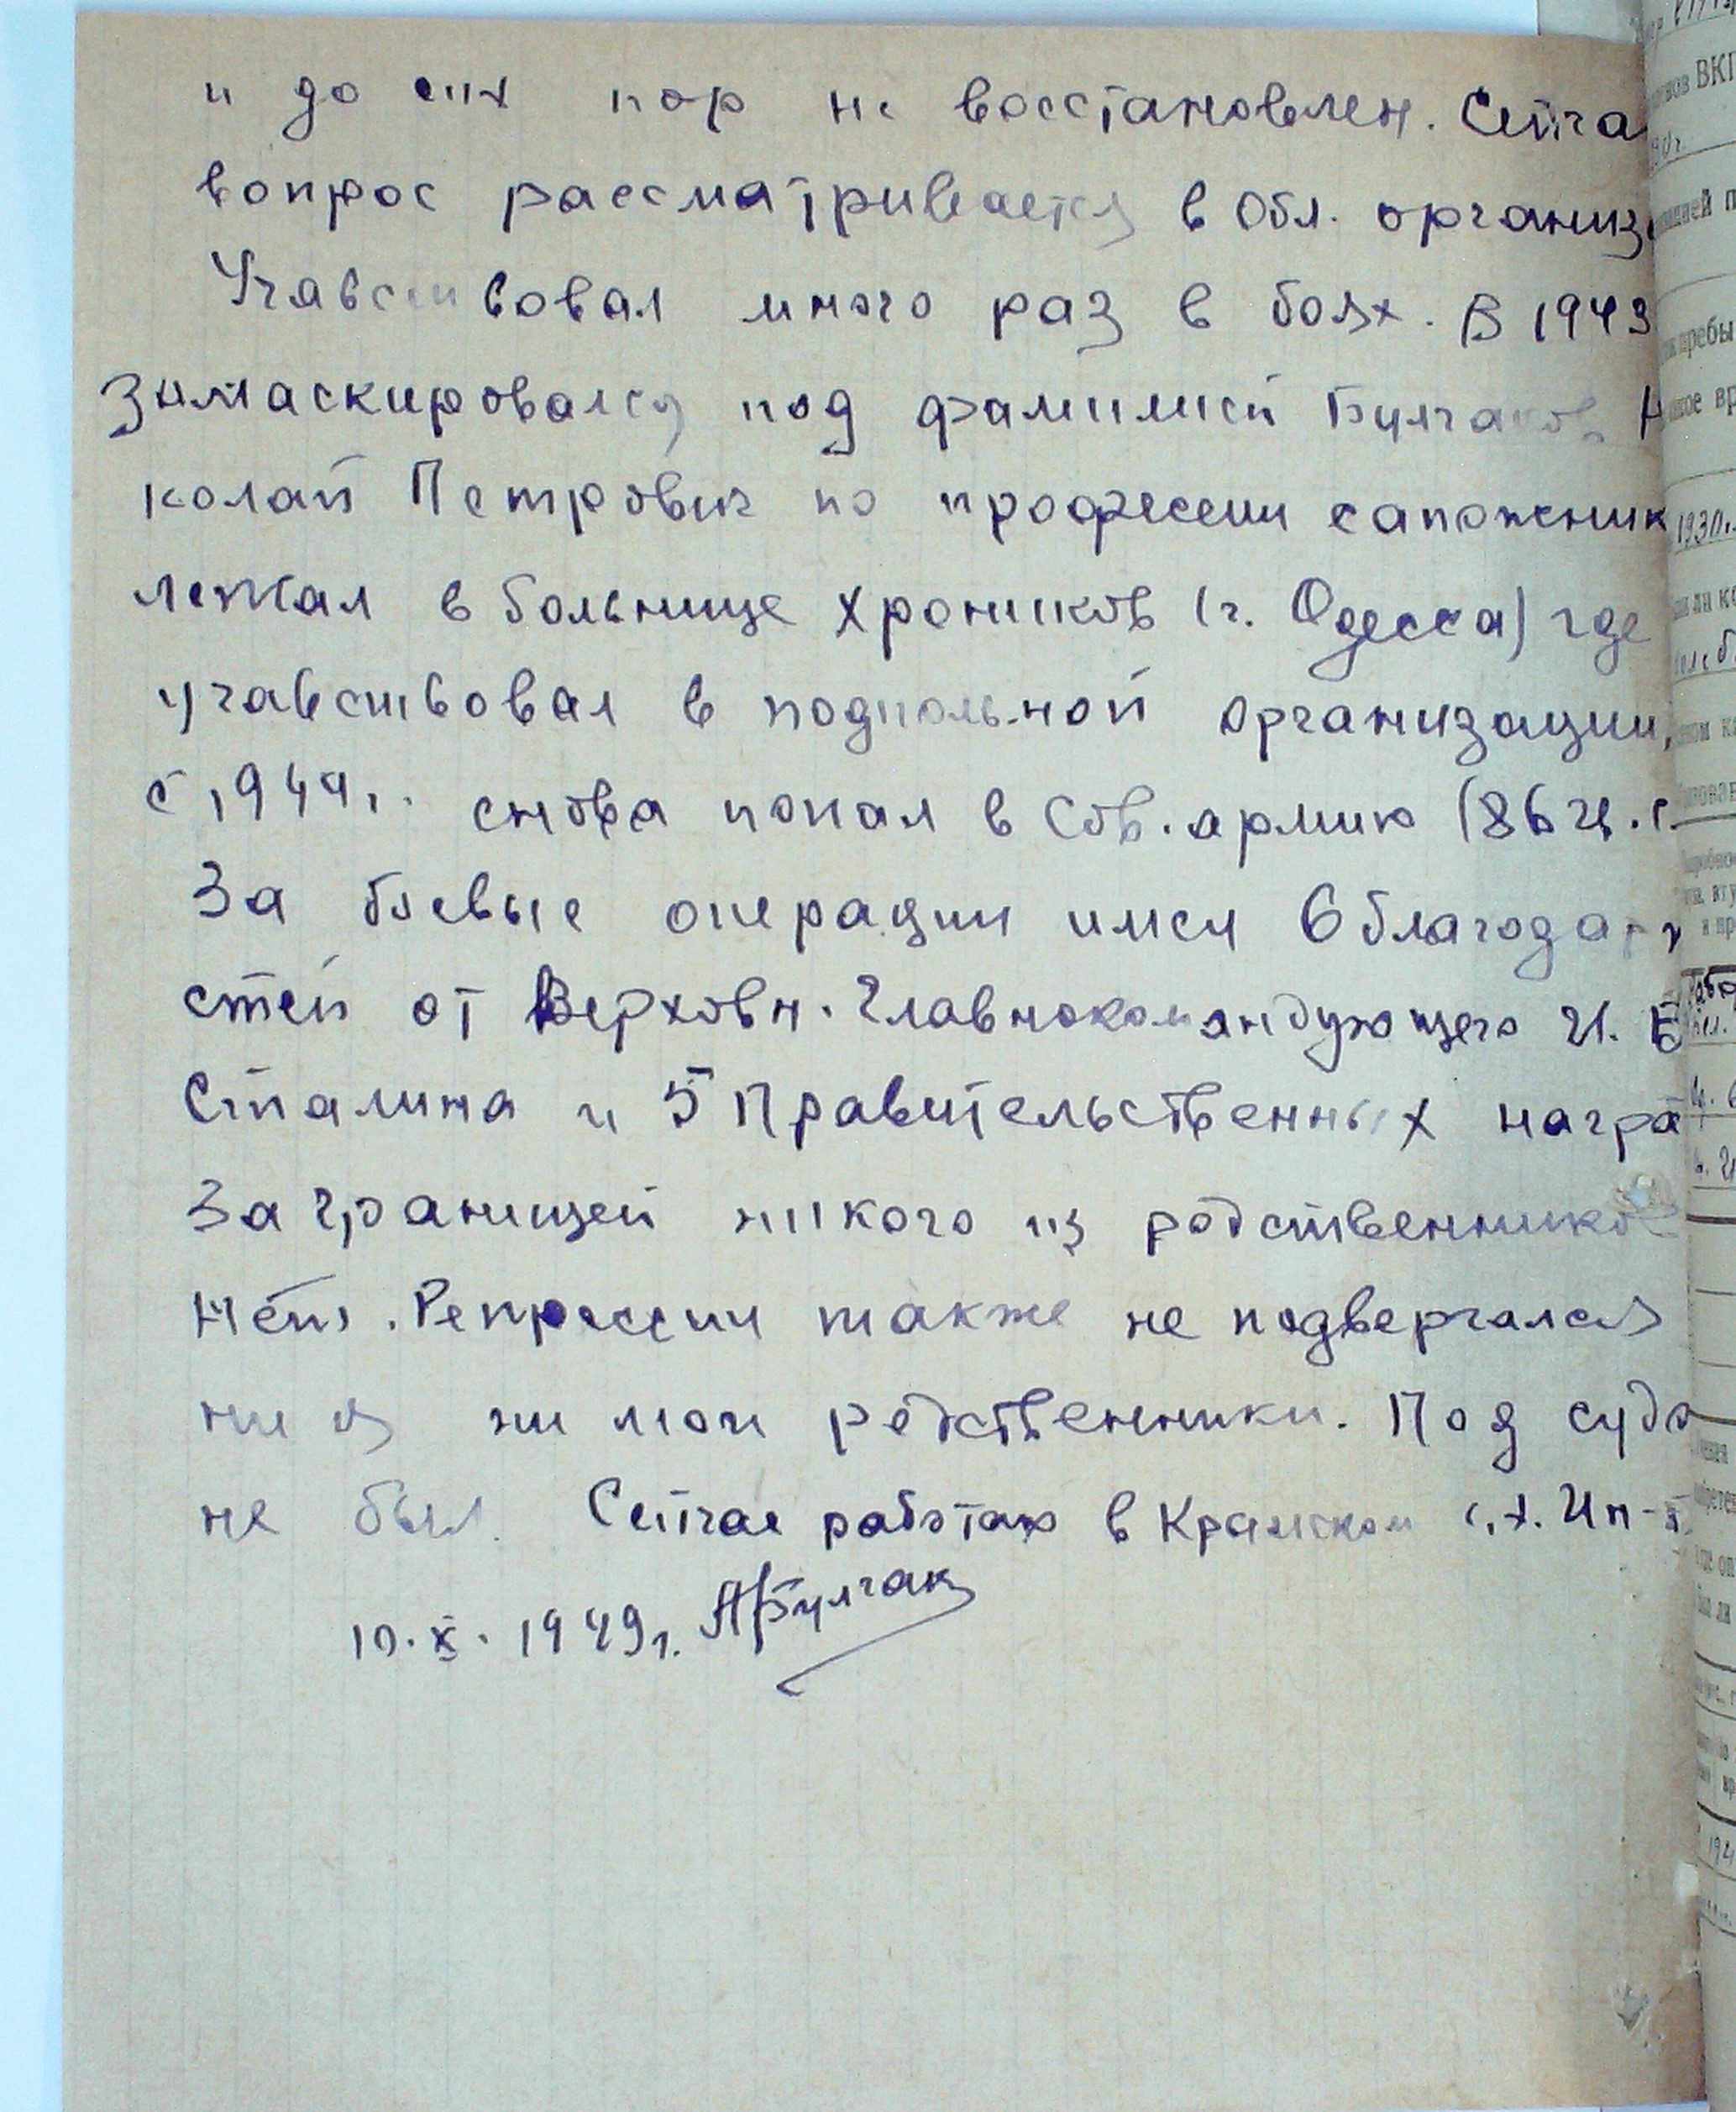 и до сих пор не восстановлен. Сейча
вопрос рассматривается в Обл. организ
Учавствовал много раз в боях. В 1943
замаскировался под фамилией Булгаков Н
колай Петрович по профессии сапожник
лежал в больнице хроников (г. Одесса) где
учавствовал в подпольной организации,
с 1944г. снова попал в Сов. армию (86 гв. с.
За боевые операции имел 6 благодарн
стей от Верховн. Главнокомандующего И. В
Сталина и 5 Правительственных награ
За границей никого из родственников
нет. Репрессии также не подвергался
ни я ни мои родственники. Под судо
не был. Сейчас работаю в Крымском с.х. Ин-т
10.X.1949г. АБулгак